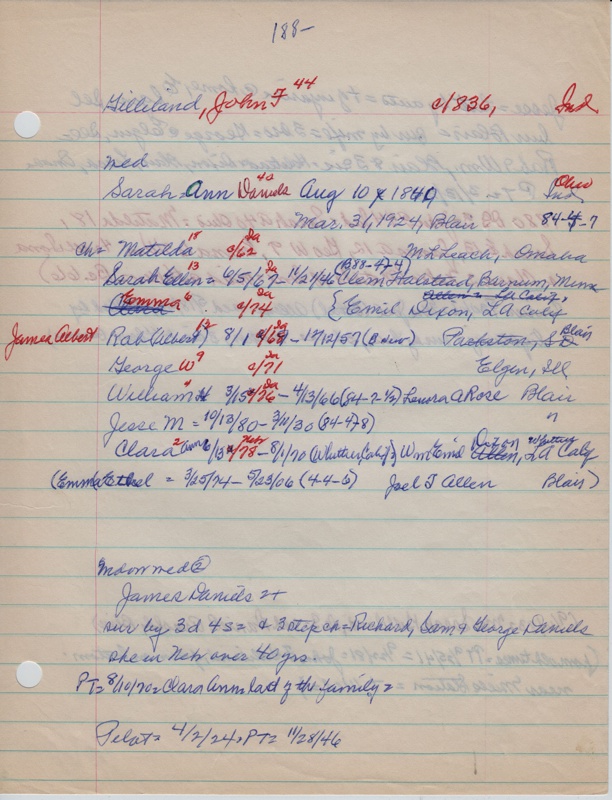 188-
Gilliland, John F 44 c/836, Ind
med
Sarah Ann Daniels 42 Aug 10, 1840 Ohio Ind
Mar, 31, 1924, Blair 84-4-7
ch= Matilda 18 c/62 Ia M L Leach, Omaha
Sarah Ellen 13 = 6/5/67 Ia - 11/21/46 (B88-4-4) Clem Halstead, Barnum, Minn
Clara Emma 6 c/74 Ia { Emil Dixon, LA Calif
James Albert Rob (Albert) 12 8/1 c/69 Ia - 12/12/57 (B new) Packston, S D Blair
George W 9 c/71 Ia Elgin, Ill
William H 4 3/15/76 Ia - 4/13/66 (84-2-½) Lenora A Rose Blair
Jesse M = 10/13/80 - 3/11/30 (84-4-8) "
Clara Ann 2 6/13 c/78 Neb - 8/1/70 (Whittier, Calif) } Wm Emil Allen, Dixon Whittier LA Calif
(Emma Ethel = 3/25/74 - 5/23/06 (44-6) Joel T Allen Blair)
Mdow med ②
James Daniels 2+
sur by 3d 4s= & 3 step ch= Richard, Sam & George Daniels
she in Neb over 40 yrs.
PT= 8/10/70= Clara Ann= last of the family=
Pilot= 4/2/24, PT= 11/28/46